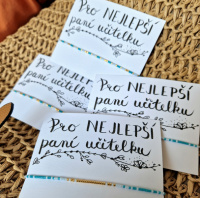 Pro NEJLEPŠÍ
paní učitelku
Pro NEJLEPŠÍ
paní učitelku
Pro NEJLEPŠÍ
paní učitelku
Pro NEJLEPŠÍ
paní učitelku